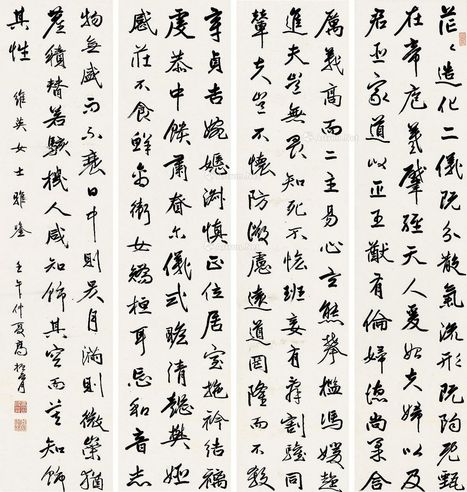 茫〻造化二儀既分散氣流形既陶既甄
在帝庖羲肇經天人爰始夫婦以及
君臣家道以正王猷有倫婦德尚柔含
厲義高而二主易心玄熊攀檻馮媛趍
進夫豈無畏知死不恡班妾有辭割驩同
輦夫豈不懷防微慮遠道罔隆而不殺
章貞吉婉嫕淑慎正位居室施衿結褵
虔恭中饋肅慎尒儀式瞻清懿樊姬
感莊不食鮮禽衛女矯桓耳忘和音志
物無盛而不衰日中則昃月滿則微崇猶
塵積替若駭機人咸知飾其容而莫知飾
其性 維英女士雅鑒 壬午仲夏高振霄